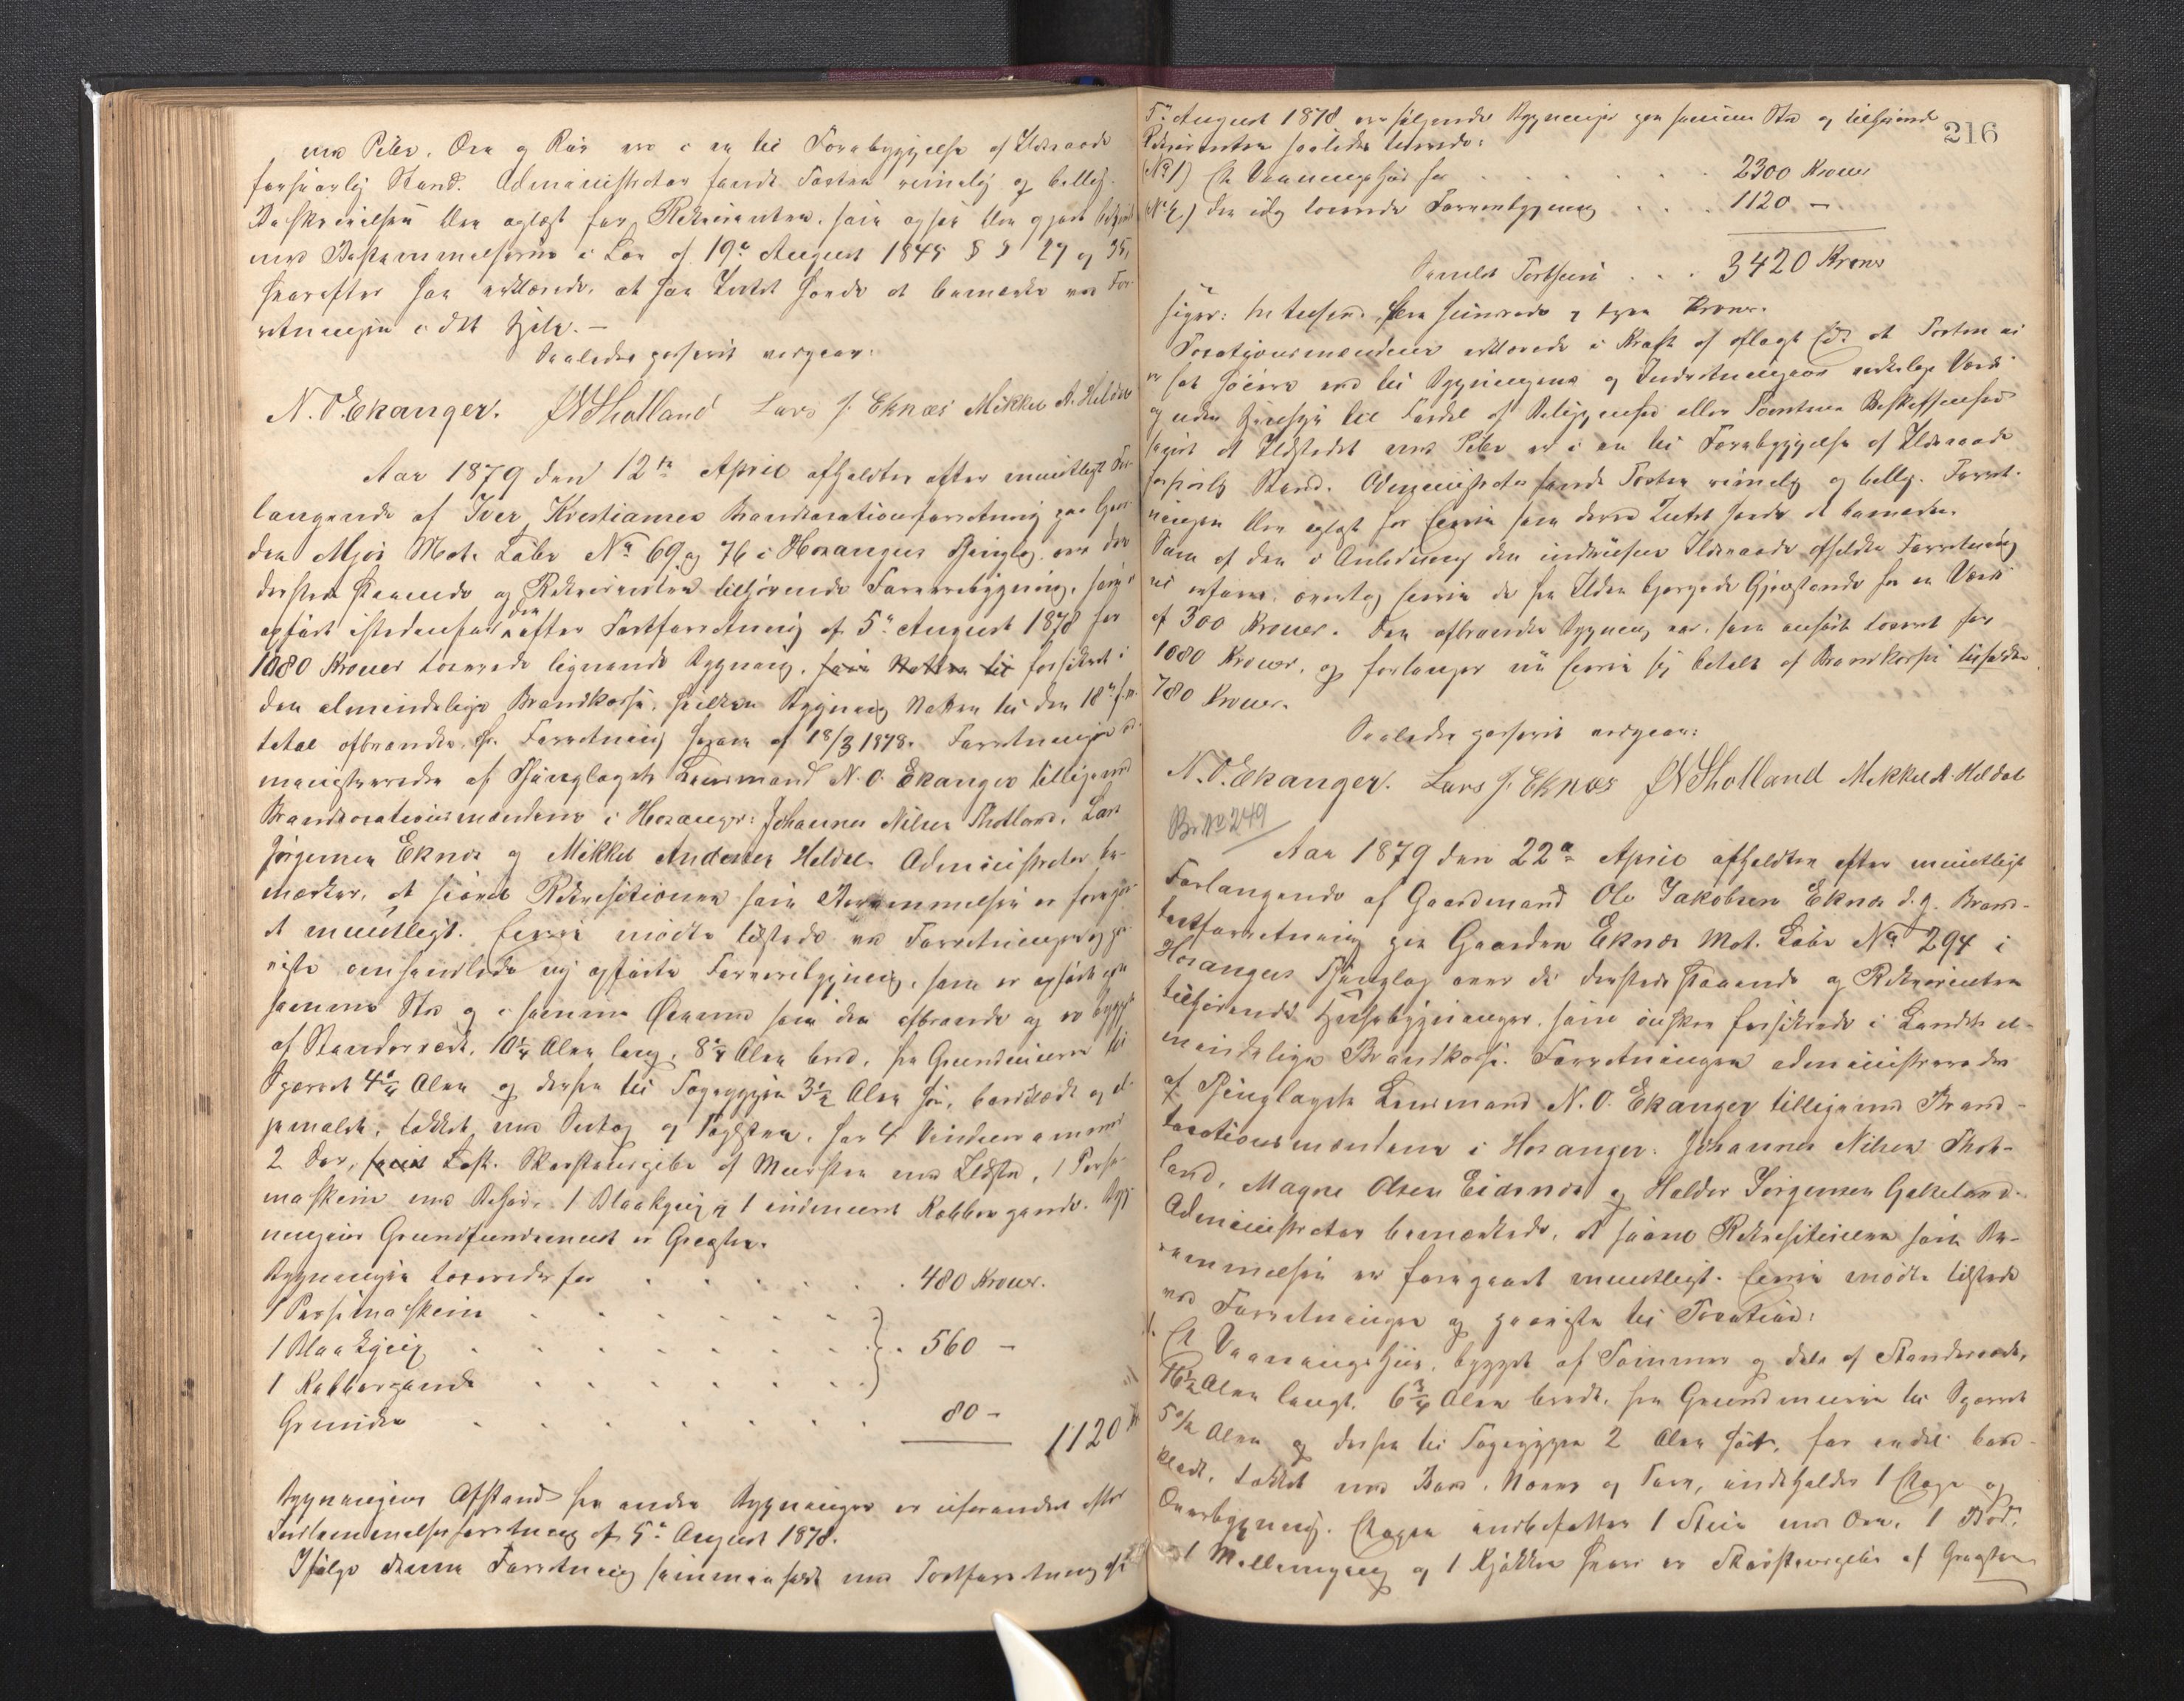 med Pibe, Ovn og Rør var i en til Forebyggelse af Ildsvaade
forsvarlig Stand. Administrator fandt Taxten rimelig og billig.
Beskrivelsen blev oplæst for Rekvirenten, som ogsaa blev gjort bekjendt
med Bestemmelserne i Lov af 19de August 1845 §§ 27 og 35,
hvorefter han erklærede, at han Intet havde at bemærke ved For-
retningen i det Hele. –
Saaledes passeret vedgaar:
N. O. Ekanger. J N Sholland Lars J. Eknæs Mikkel A. Heldal
Aar 1879 den 12te April afholdtes efter mundtligt For-
langende af Iver Kristiansen Brandtaxationsforretning paa Gaar-
den Mjøs Mat. Løbe No 69 og 76 i Hosangers Thinglag over den
dersteds staaende og Rekvirenten tilhørende Farveribygning, som er
opført istedenfor den efter Taxtforretning af 5te August 1878 for
1080 Kroner taxerede lignende Bygning, som Natten til forsikret i
den almindelige Brandkasse, hvilken Bygning Natten til den 18de f. M.
total afbrændte, cfr. Forretning herom af 18/3 1878. Forretningen ad-
ministreredes af Thinglagets Lensmand N. O. Ekanger tilligemed
Brandtaxationsmændene i Hosanger: Johannes Nilsen Thotland, Lars
Jørgensen Eknæs og Mikkel Andersen Heldal. Administrator be-
mærker, at saavel Rekvisitionen som Berammelsen er foregaa-
et mundtligt. Eieren mødte tilstede ved Forretningen og paa-
viste omhandlede ny opførte Farveribygning, som er opført paa
samme Sted og i samme Øiemed som den afbrændte og er bygget
af Standerværk, 10¼ Alen lang, 8¼ Alen bred, fra Grundmuren til
Sperret 4¼ Alen og derfra til Tagryggen 3½ Alen høi, bordklædt og u-
jemalet, tækket med Sutag og Tagsten, har 4 Vinduesrammer
2 Dør, samt Loft. Skorstenspibe af Mursten med Ildsted, 1 Perse-
maskin med Behør, 1 Blaakyp og 1 indmuret Kobbergande. Byg-
ningens Grundfundament er Graasten.
Bygningen taxeredes for . . . . . . 480 Kroner.
1 Persemaskin . . . . . . .
1 Blaakyp . . . . . . . } . 560 –
1 Kobbergande . . . . . . .
Grunden . . . . . . . 80 –
1120
Bygningens Afstand fra andre Bygninger er uforandret efter
Indlemmelsesforretning af 5te August 1878.
Ifølge denne Forretning sammenholdt med Taxtforretning af
5te August 1878 er følgende Bygninger paa samme Sted og tilhørende
216
Rekvirenten saaledes taxerede:
No 1) Et Vaaningshus for . . . . . . 2300 Kroner
No 2) Den idag taxerede Farveribygning . . . 1120 –
Samlet Taxtsum . . . 3420 Kroner
siger: tre tusend, fire hundrede og tyve Kroner.
Taxationsmændene erklærede i Kraft af aflagt Ed at Taxten ei
er sat høiere end til Bygningens og Indretningens virkelige Værdi
og uden Hensyn til Fordel af Beliggenhed eller Tomtens Beskaffenhed
samt at Ildstedet med Pibe er i en til Forebyggelse af Ildsvaade
forsvarlig Stand. Administrator fandt Taxten rimelig og billig. Forret-
ningen blev oplæst for Eieren som derved Intet havde at bemærke.
Som af den i Anledning den indtrufne Ildsvaade afholdte Forretning
vil erfares, overtog Eieren de fra Ilden bjergede Gjenstande for en Værdi
af 300 Kroner. Den afbrændte Bygning var, som anført taxeret for
1080 Kroner, og forlanger nu Eieren sig betalt af Brandkassen tilfaldne
780 Kroner.
Saaledes passeret vedgaar:
N. O. Ekanger. Lars J. Eknæs J N Sholland Mikkel A. Heldal
Br No 249
Aar 1879 den 22de April afholdtes efter mundtligt
Forlangende af Gaardmand Ole Jakobsen Eknæs d. y. Brand-
taxtforretning paa Gaarden Eknæs Mat. Løbe No 294 i
Hosangers Thinglag over de dersteds staaende og Rekvirenten
tilhørende Husebygninger, som ønskes forsikrede i Landets al-
mindelige Brandkasse. Forretningen administreredes
af Thinglagets Lensmand N. O. Ekanger tilligemed Brand-
taxationsmændene i Hosanger: Johannes Nilsen Thot-
land, Magne Olsen Eidsnæs og Haldor Jørgensen Hakeland.
Administrator bemærkede, at saavel Rekvisitionen som Be-
rammelsen er foregaaet mundtligt. Eieren mødte tilstede
ved Forretningen og paaviste til Taxation:
1. Et Vaaningshus, bygget af Tømmer og dels af Standerværk,
16½ Alen langt, 6¾ Alen bredt, fra Grundmuren til Sperret
5½ Alen og derfra til Tagryggen 2 Alen høit, for en del bord-
klædt, tækket med Bord, Næver og Torv, indeholder 1 Etage og
Overbygning. Etagen indbefatter 1 Stue med Ovn, 1 Bod,
1 Mellemgang og 1 Kjøkken hvori er Skorstenspibe af Graasten